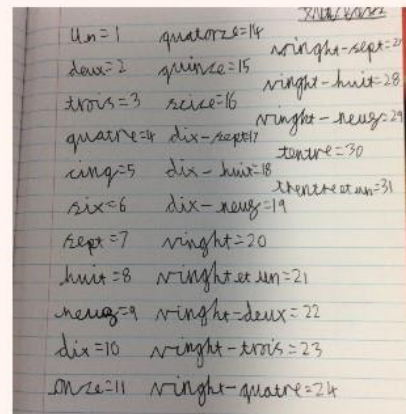 un=1
deux=2
trois=3
quatre=4
cinq=5
six=6
sept=7
huit=8
neuf=9
dix=10
onze=11
quatorze=14
quinze=15
seize=16
dix-sept17
dix-huit=18
dix-neuf=19
vinght=20
vinght et un=21
vinght-deux=22
vinght-trois=23
vinght-quatre=24
vinght-sept=27
vinght-huit=28
vinght-neuf=29
tentre=30
trentre et un=31